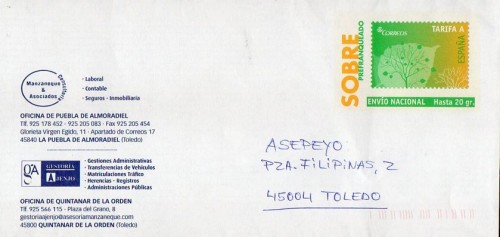 SOBRE
PREFRANQUEADO
CORREOS
TARIFA A
ESPAÑA
ENVÍO NACIONAL Hasta 20 gr.
Manzaneque
&
Asociados
Consultoría
· Laboral
· Contable
· Seguros - Inmobiliaria
OFICINA DE PUEBLA DE ALMORADIEL
Tlf. 925 178 452 - 925 205 083 - Fax 925 205 454
Glorieta Virgen Egido, 11 · Apartado de Correos 17
45840 LA PUEBLA DE ALMORADIEL (Toledo)
gA
GESTORÍA
AJENJO
· Gestiones Administrativas
· Transferencias de Vehículos
· Matriculaciones Tráfico
· Herencias - Registros
· Administraciones Públicas
OFICINA DE QUINTANAR DE LA ORDEN
Tlf. 925 566 115 - Plaza del Grano, 8
gestoriaajenjo@asesoriamanzaneque.com
45800 QUINTANAR DE LA ORDEN (Toledo)
ASEPEYO
PZA. FILIPINAS, 2
45004 TOLEDO